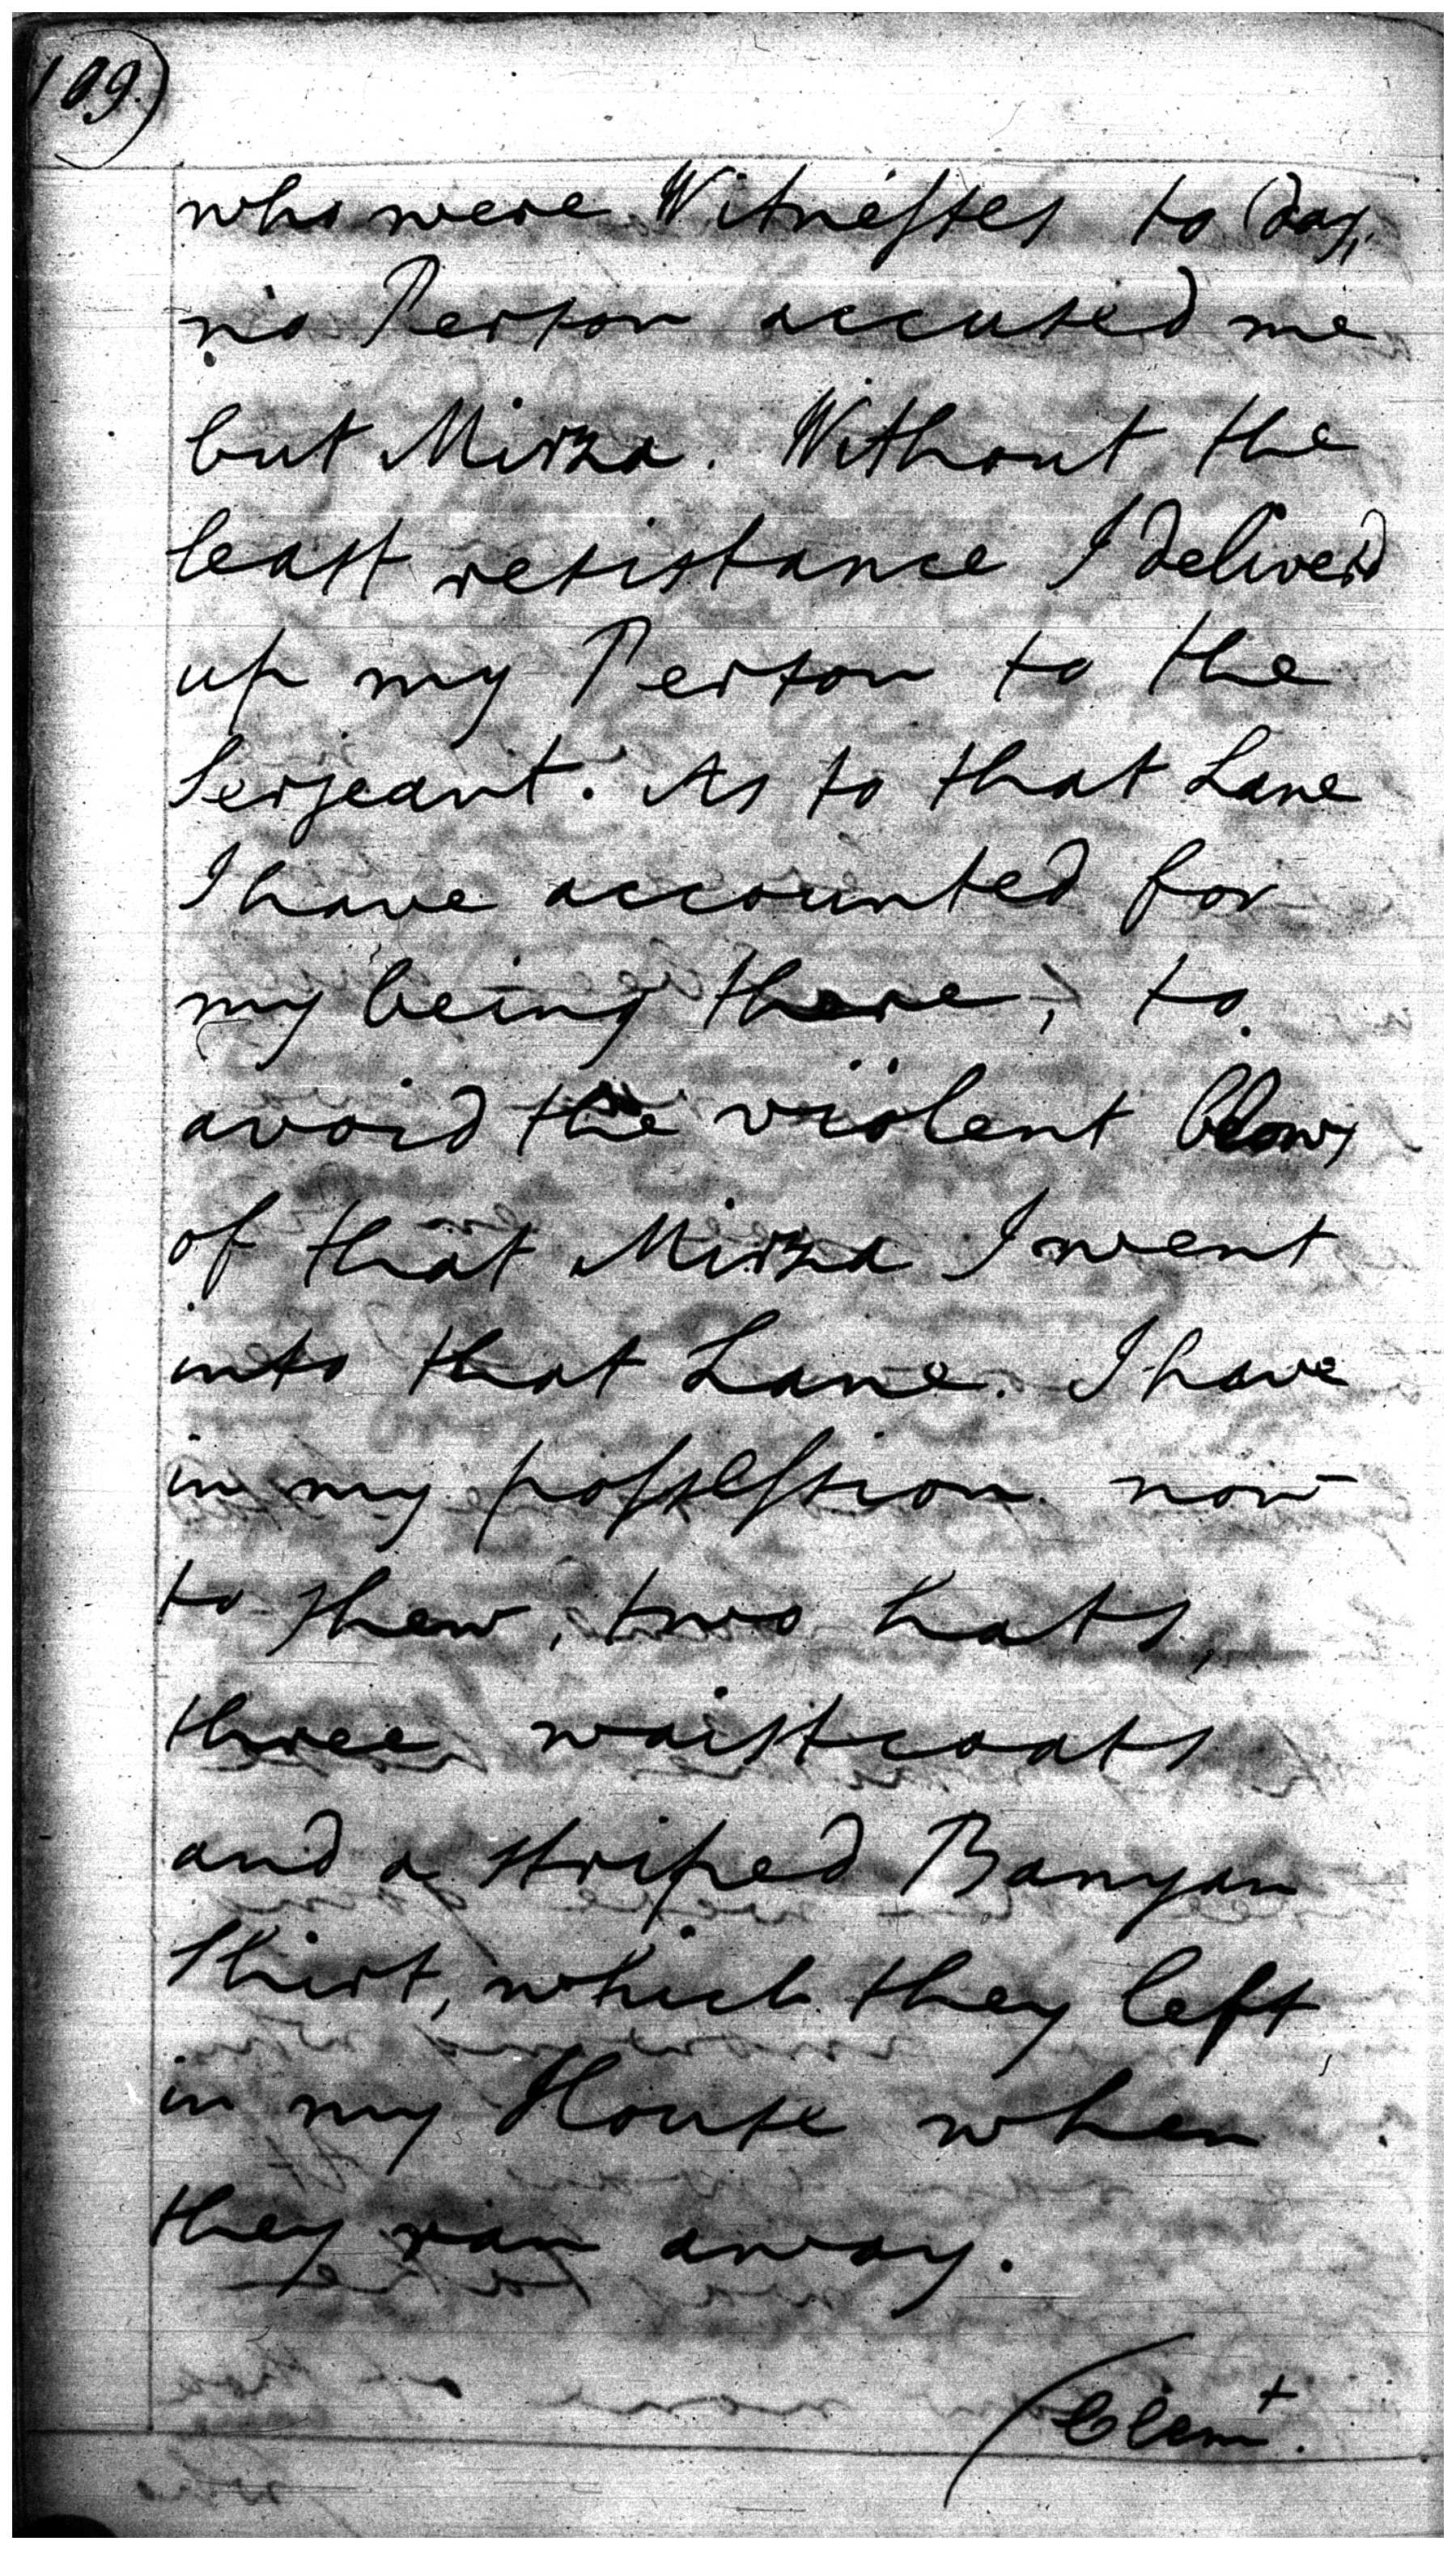 109)
who were Witneſses to day,
no Person accused me
but Mirza. Without the
least resistance I deliverd
up my Person to the
Serjeant. As to that Lane
I have accounted for
my being there, to
avoid the violent blows
of that Mirza I went
into that Lane. I have
in my poſseſsion now
to shew, two hats,
three waistcoats
and a striped Banyan
Shirt, which they left
in my House when
they ran away.
(Clemt.